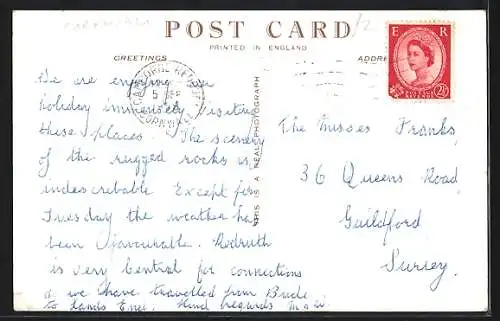 POST CARD
PRINTED IN ENGLAND
GREETINGS
ADDRE
E R
POSTAGE REVENUE
2½D
CAMBORNE REDRUTH
5 SEP
CORNWALL
We are enjoying our
holiday immensely visiting
these places. The scenery
of the rugged rocks is
indescribable Except for
Tuesday the weather has
been favourable. Redruth
is very Central for connections
& we have travelled from Bude
to Lands End. Kind regards
THIS IS A REAL PHOTOGRAPH
The Misses Franks,
36 Queens Road,
Guildford
Surrey.